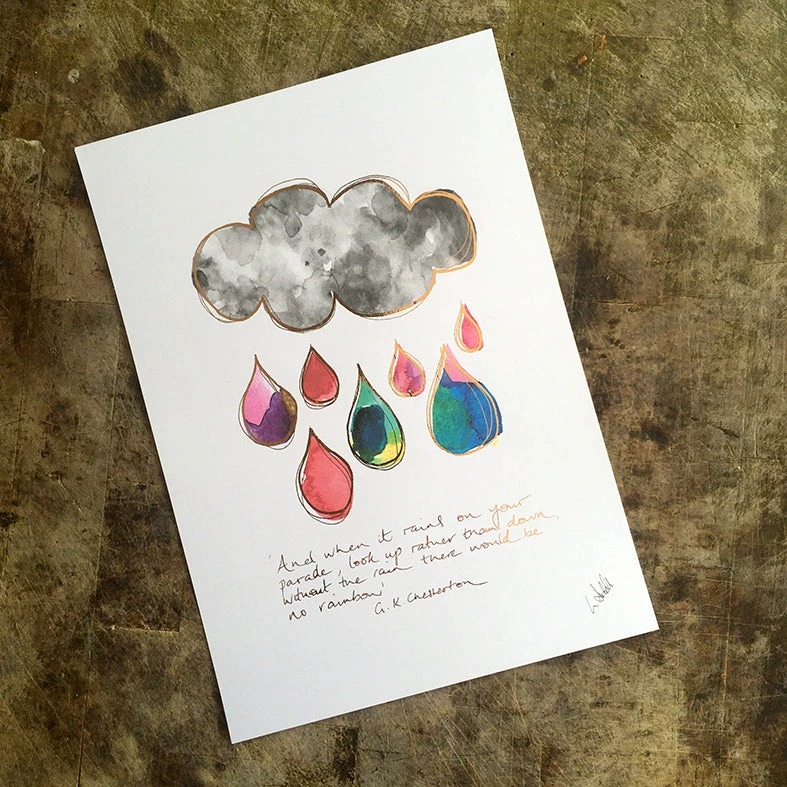 'And when it rains on your
parade, look up rather than down,
without the rain there would be
no rainbow'
G.K. Chesterton